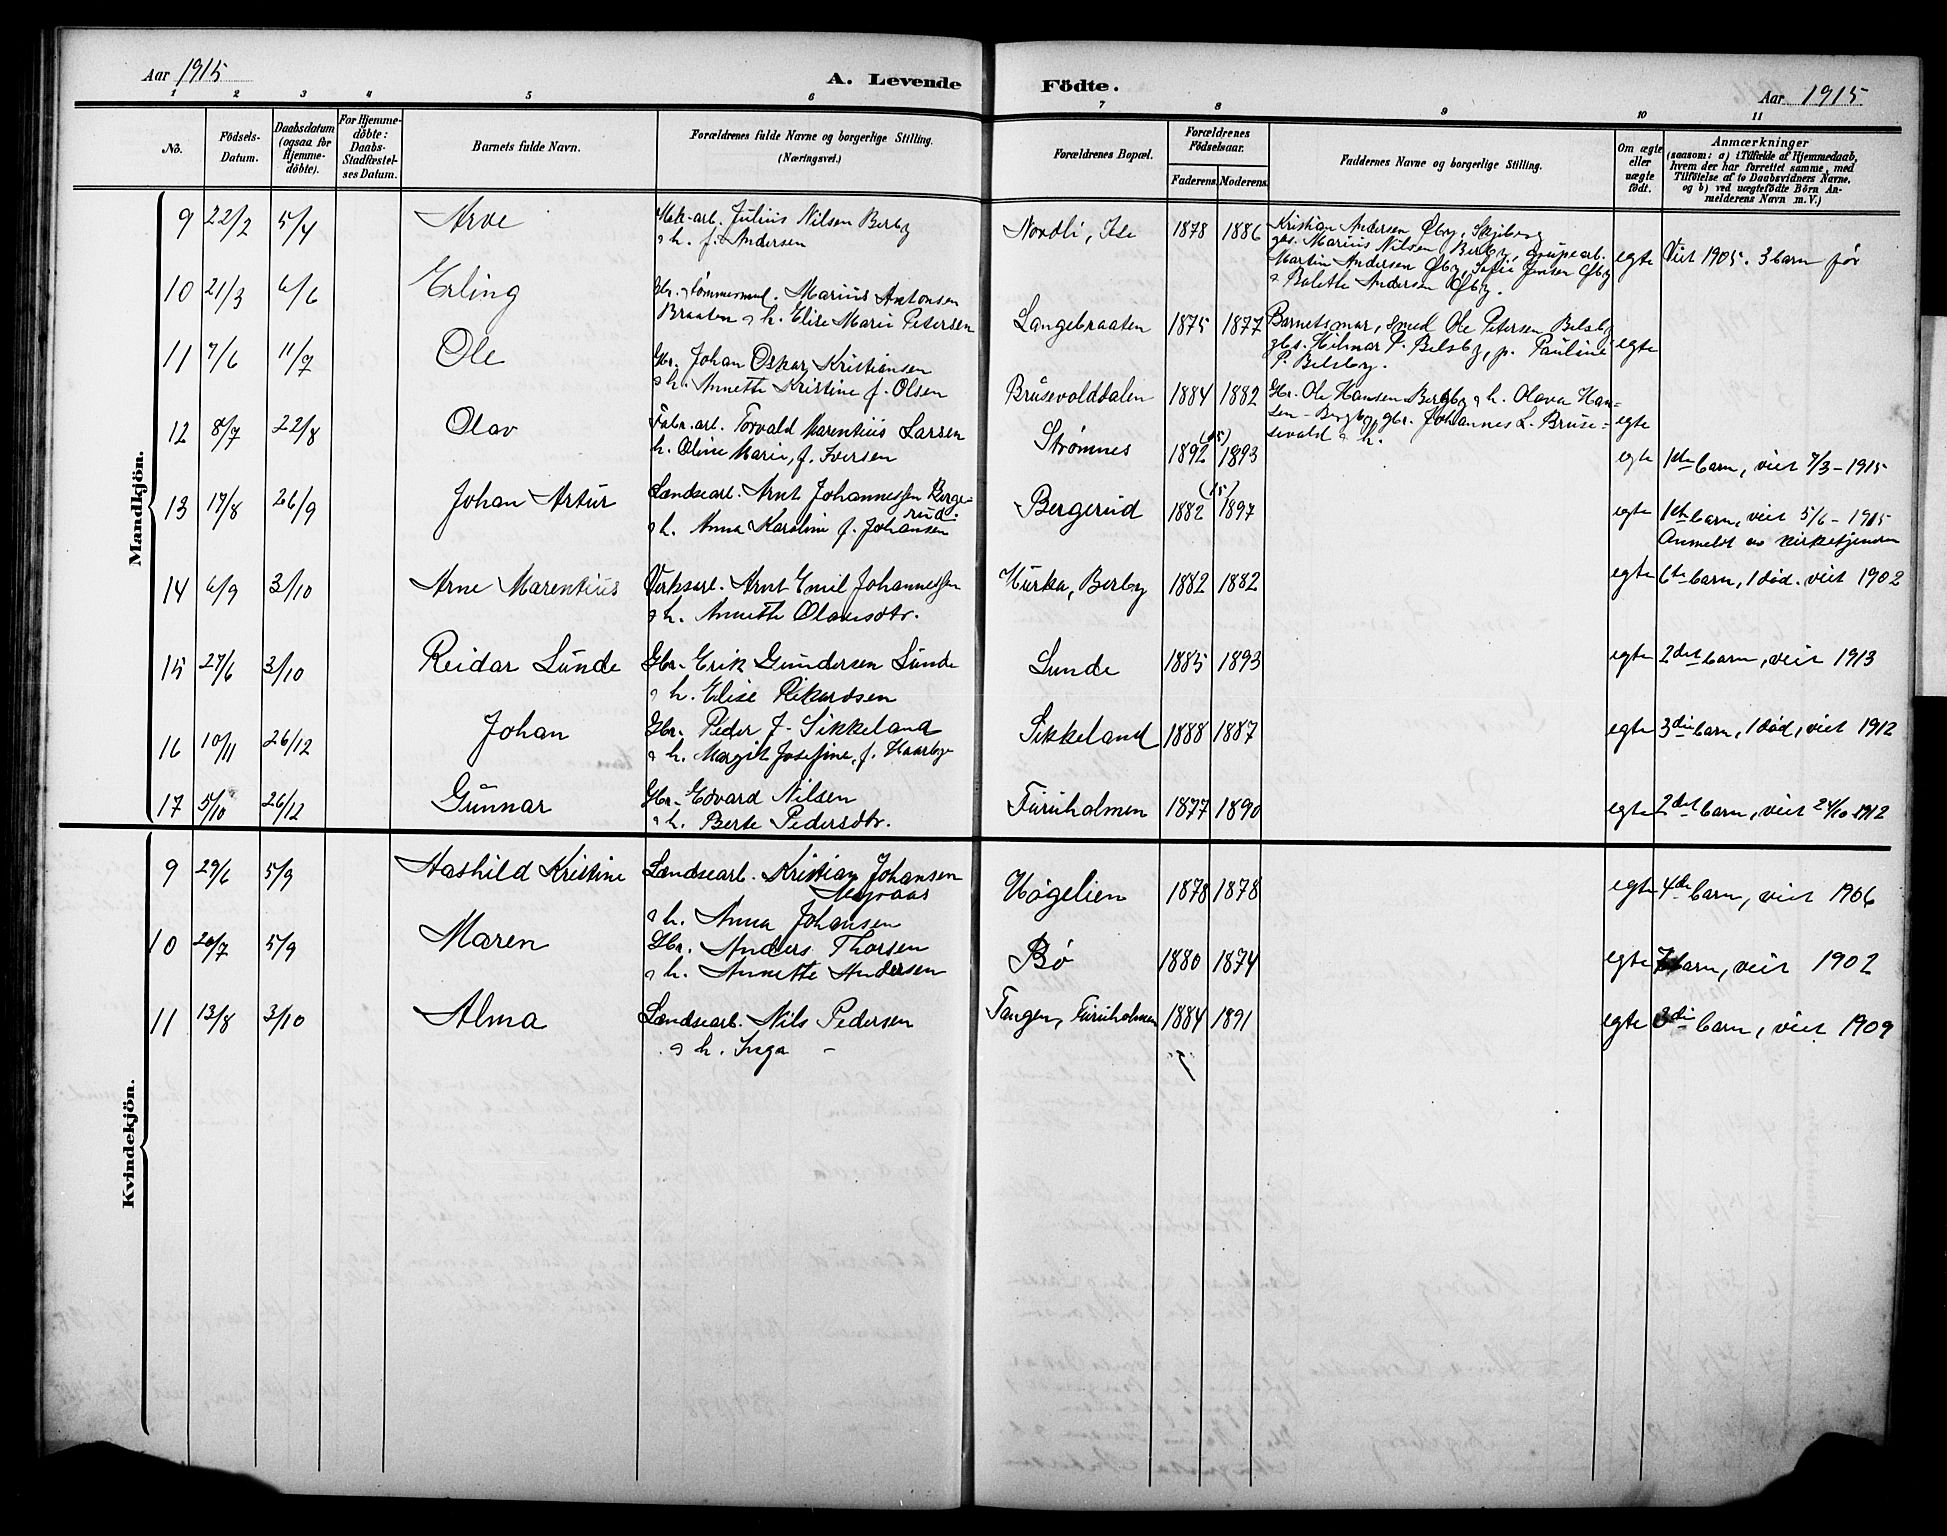 Aar 1915
A. Levende Födte.
Aar 1915
1 2 3 4 5 6 7 8 9 10 11
No.
Födsels-Datum.
Daabsdatum (ogsaa for Hjemme-döbte).
For Hjemme-döbte: Daabs-Stadfæstel-ses Datum.
Barnets fulde Navn.
Forældrenes fulde Navne og borgerlige Stilling.
(Næringsvei.)
Forældrenes Bopæl.
Forældrenes Födselsaar.
Faderens. Moderens.
Faddernes Navne og borgerlige Stilling.
Om ægte eller uægte födt.
Anmærkninger
(saasom: a) i Tilfælde af Hjemmedaab,
hvem der har forrettet samme, med
Tilföielse af to Daabsvidners Navne,
og b) ved uægtefödte Börn An-
melderens Navn m. V.)
Mandkjön.
9 22/2 5/4 Arve
Julius Nilsen Berby
h. f. Andersen
Nordli, Ise 1878 1886
Kristian Andersen Øby, Skjeberg
gbs. Marius Nilsen Berby, grubearb.
Martin Andersen Øby, Sofie Jensen Øby
Bolette Andersen Øby.
egte Viet 1905. 3 barn før
10 21/3 6/6 Erling
Gbr. tømmermd. Marius Antonsen
Braaten o h. Elise Marie Petersen
Langebraaten 1875 1877
Barnets mor, smed Ole Petersen Belsby
gbs. Hilmar P. Belsby, p. Pauline
P. Belsby.
egte
11 7/6 11/7 Ole
Gbr. Johan Oskar Kristiansen
o h. Annette Kristine f. Olsen
Brusevolddalen 1884 1882
Gbr. Ole Hansen Bergby o h. Olava Han-
sen - Bergby, gbr. Johannes L. Bruse-
sevald o h.
egte
12 8/7 22/8 Olav
Fabr. arb. Torvald Marentius Larsen
h. Oline Marie, f. Iversen
Strømnes 1892 (15) 1893
egte 1ste barn, viet 7/3 - 1915
13 17/8 26/9 Johan Artur
Landsearb. Arnt Johannessen Berge-
rud.
o h. Anna Karoline f. Johansen
Bergerud 1882 (15) 1897
egte 1ste barn, viet 5/6 - 1915
Anmeldt av kirketjeneren
14 6/9 3/10 Arne Marentius
Verksarb. Arnt Emil Johannessen
o h. Annette Olausdtr.
Hurka, Berby 1882 1882
egte 6te barn, 1 død. viet 1902
15 27/6 3/10 Reidar Lunde
Gbr. Erik Gundersen Lunde
o h. Elise Rikardsen
Lunde 1885 1893
egte 2det barn, viet 1913
16 10/11 26/12 Johan
Gbr. Peder J. Sikkeland
o h. Margit Josefine, f. Haarbye
Sikkeland 1888 1887
egte 3die barn, 1 død, viet 1912
17 5/10 26/12 Gunnar
Gbr. Edvard Nilsen
o h. Berte Pedersdtr.
Furuholmen 1877 1890
egte 2det barn, viet 24/10 1912
Kvindekjön.
9 29/6 5/9 Aashild Kristine
Landsearb. Kristian Johansen
Myraas
o h. Anna Johansen
Høgelien 1878 1878
egte 4de barn, viet 1906
10 20/7 5/9 Maren
Gbr. Anders Thorsen
o h. Annette Andersen
Bø 1880 1874
egte 7 barn, viet 1902
11 13/8 3/10 Alma
Landsearb. Nils Pedersen
o h. Inga -
Tangen, Furuholmen 1884 1891
egte 3die barn, viet 1909